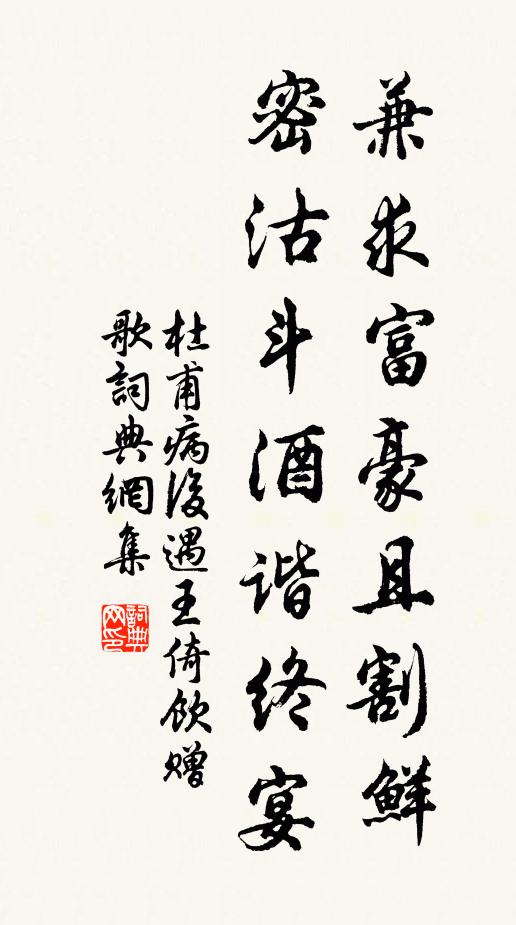 兼求富豪且割鮮
密沽斗酒谐終宴
杜甫病後遇王倚飲贈
歌詞典網集
詞典網印